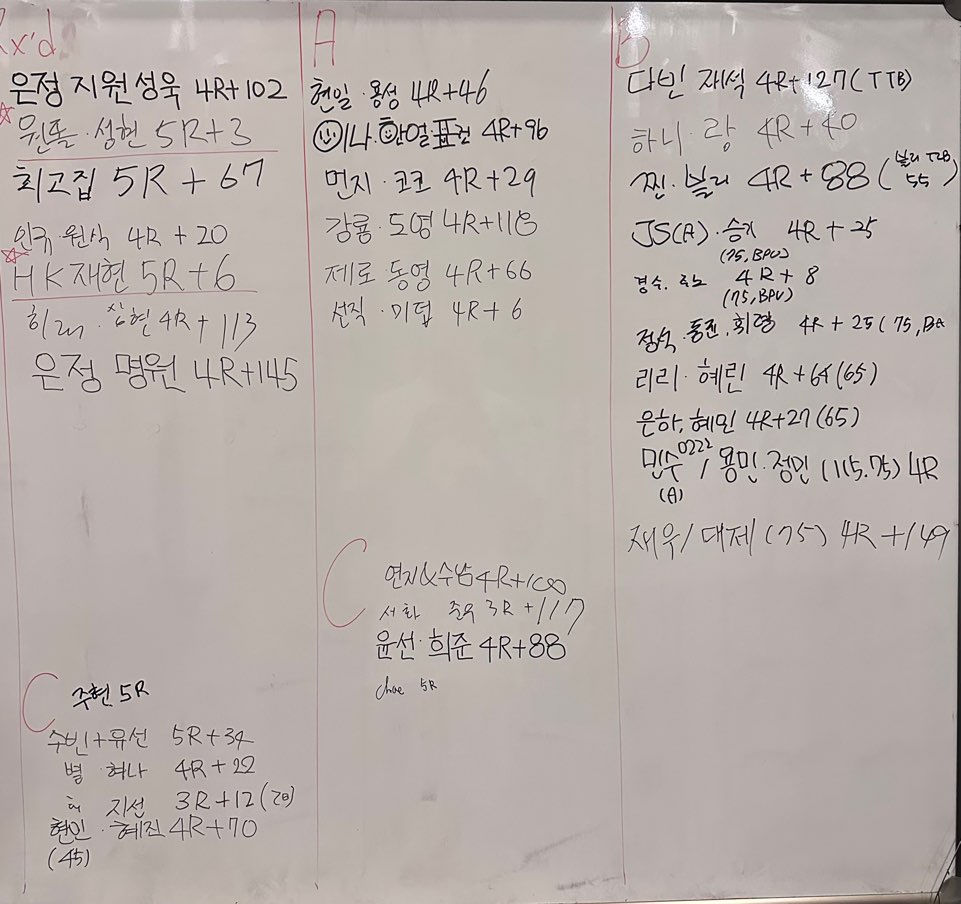 Rx'd
은정 지원 성욱 4R+102
원폴 · 성현 5R+3
최고집 5R + 67
민규 · 원식 4R + 20
HK 재현 5R + 6
4R + 113
은정 명원 4R+145
C
주현 5R
수빈+유선 5R+34
별 · 혀나 4R+22
지선 3R+12
현민 · 혜진 4R+70
(45)
A
현일 · 용성 4R+46
이나 · 한얼 4R+96
먼지 · 코코 4R+29
강룡 · 도영 4R+118
제로 동영 4R+66
선직 · 미덥 4R + 6
C
연지&수남 4R+100
서화 준우 3R +117
윤선 · 희준 4R+88
chae 5R
B
다빈 재석 4R+127(TTB)
하니 · 랑 4R + 40
찐 · 블리 4R + 88 (블리 T2B 55)
JS(A) · 승지 4R + 25
(75, BPU)
경수 · 4R + 8
(75, BPU)
정석 · 동진, 회령 4R + 25 (75,
리리 · 혜린 4R + 64 (65)
은하, 혜민 4R+27 (65)
민수0222 / 용민 · 정민 (115.75) 4R
(A)
재우/대제 (75) 4R +149